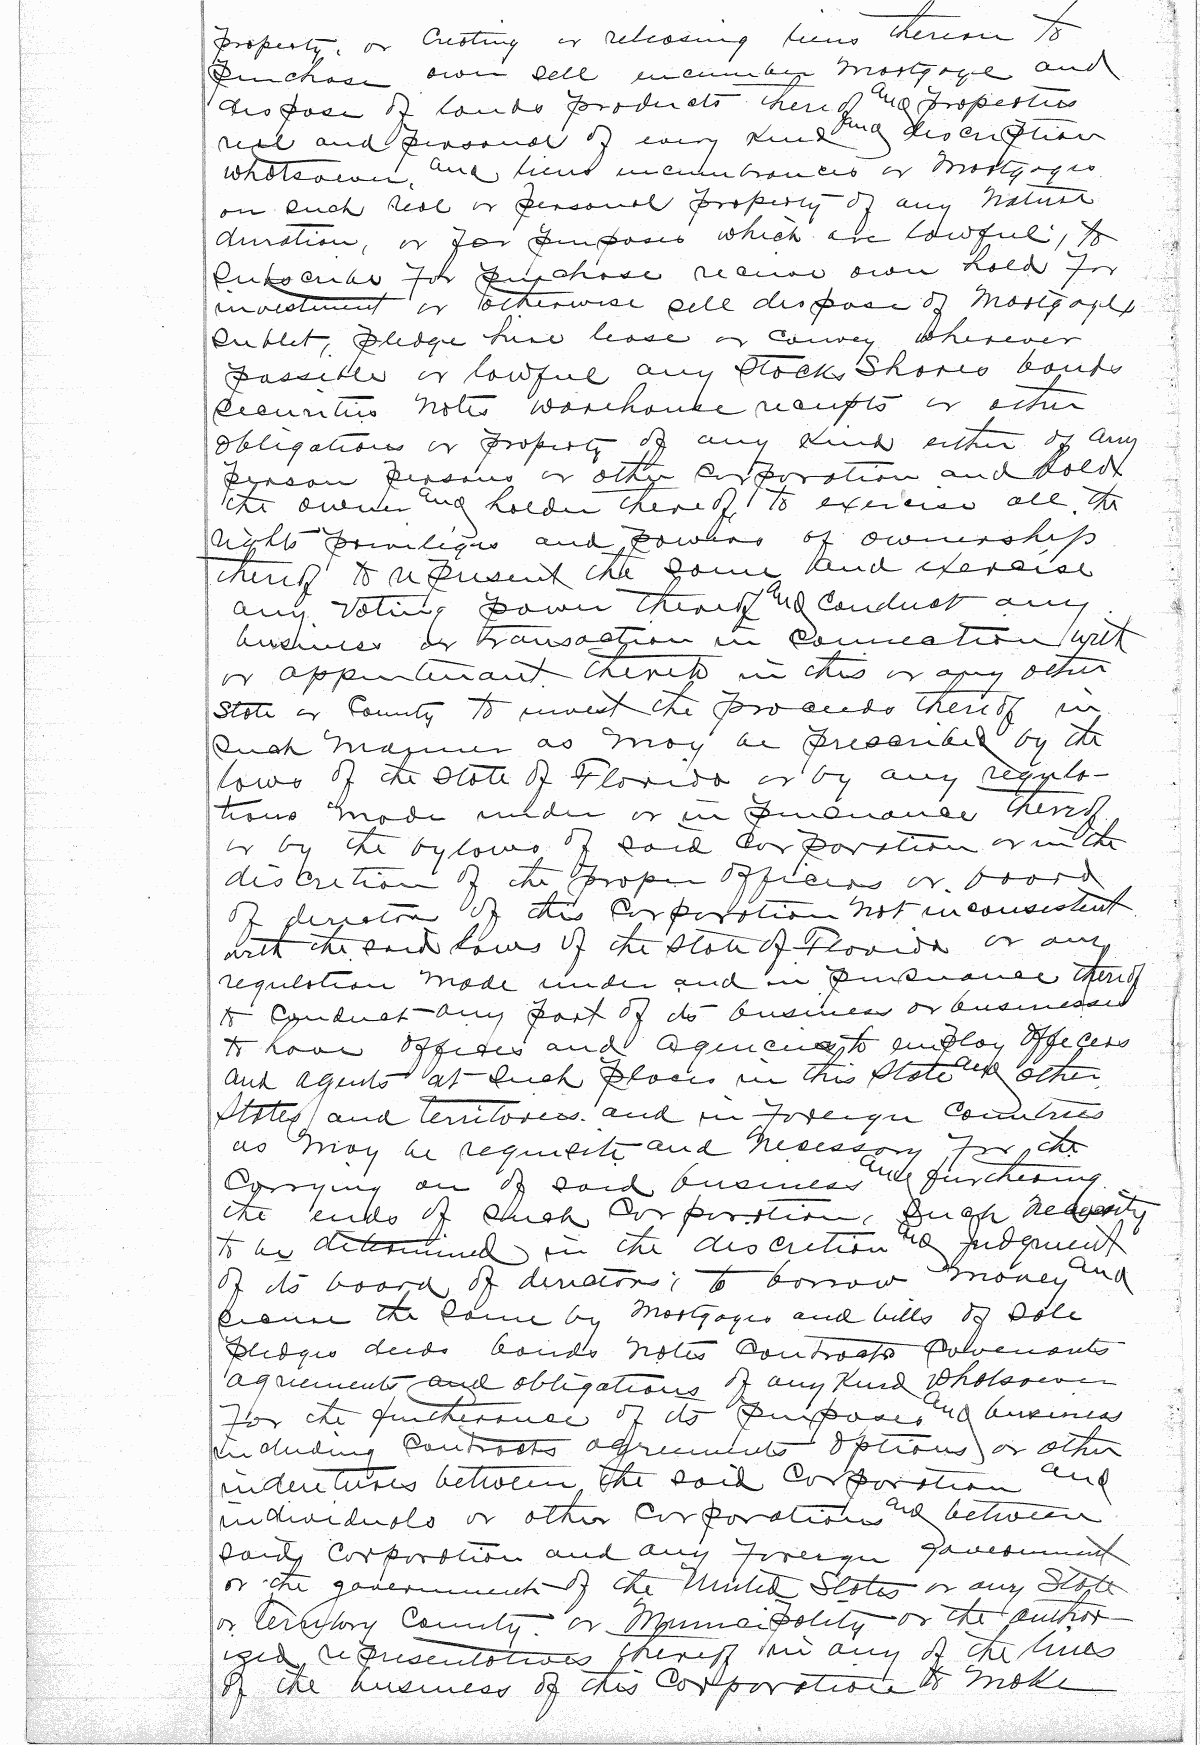 property, or Creating or releasing liens thereon to
purchase own sell encumber Mortgage and
dispose of lands products thereof and properties
real and personal of every Kind and discription
whatsoever, and liens incumbrances or Mortgages
on such real or personal property of any Nature
duration, or for purposes which are lawful; to
Subscribe for purchase receive own hold for
investment or otherwise sell dispose of Mortgage
sublet, pledge hire lease or convey wherever
possible or lawful any Stocks Shares bonds
securities Notes warehouse receipts or other
obligations or property of any Kind either of any
person persons or other corporation and hold
the owner and holder thereof, to exercise all the
rights priviliges and powers of ownership
thereof to represent the same and exercise
any Voting power thereof and conduct any
business or transaction in connection with
or appurtenant thereto in this or any other
State or County to invest the proceeds thereof in
such Manner as May be prescribed by the
laws of the State of Florida or by any regula-
tions Made under or in pursuance thereof
or by the bylaws of said Corporation or in the
discretion of the proper officers or board
of directors of this Corporation Not inconsistent
with the said laws of the State of Florida or any
regulation Made under and in pursuance thereof
to conduct any part of its business or businesses
to have offices and agencies to employ officers
and agents at such places in this State and other
States and territories and in Foreign Countries
as May be requisite and Necessary for the
Carrying on of said business and furthering
the ends of such Corporation, Such Necessity
to be determined in the discretion and judgment
of its board of directors; to borrow Money and
secure the same by Mortgages and bills of sale
pledges deeds bonds Notes Contracts Covenants
agreements and obligations of any Kind whatsoever
For the furtherance of its purposes and business
including Contracts agreements options or other
indentures between the said Corporation and
individuals or other Corporations and between
said Corporation and any Foreign government
or the government of the United States or any State
or Territory County or Municipality or the author
ized representatives thereof in any of the lines
of the business of this Corporation to Make